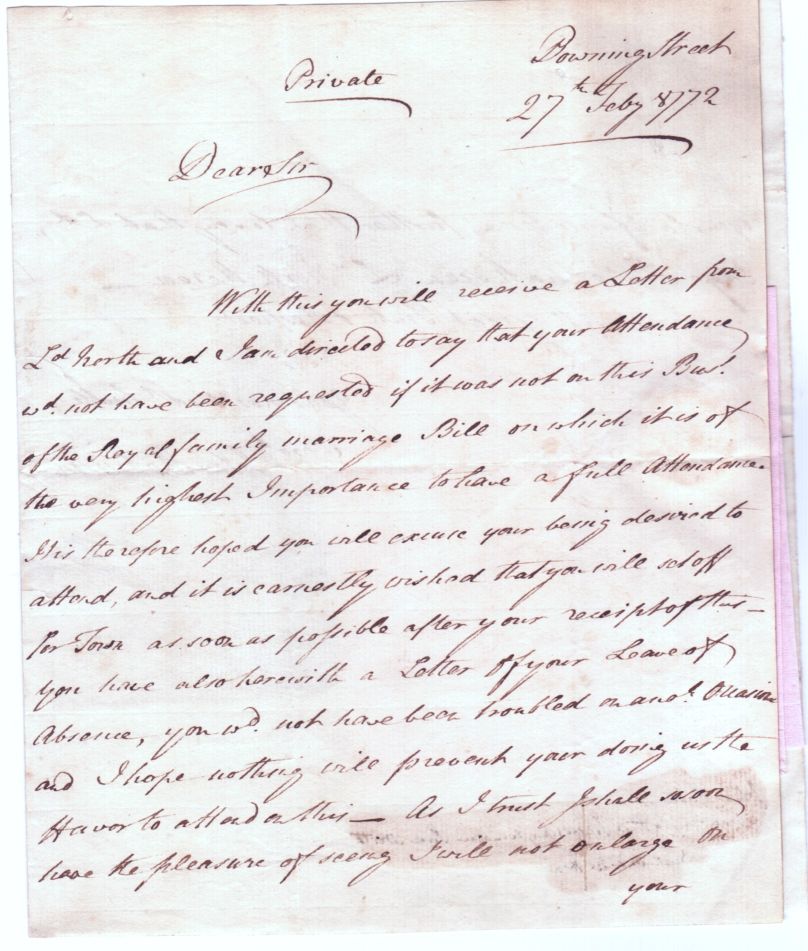 Downing Street
Private
27th Feby 1772
Dear Sir
With this you will receive a Letter from
Ld North and I am directed to say that your Attendance
wd. not have been requested if it was not on this Bus.
of the Royal family marriage Bill on which it is of
the very highest Importance to have a full Attendance.
It is therefore hoped you will excuse your being desired to
attend, and it is earnestly wished that you will set off
for Town as soon as possible after your receipt of this —
you have also herewith a Letter of your Leave of
Absence, you wd. not have been troubled on anor. Occasion
and I hope nothing will prevent your doing us the
Havor to attend on this — As I trust I shall soon
have the pleasure of seeing I will not enlarge on
your